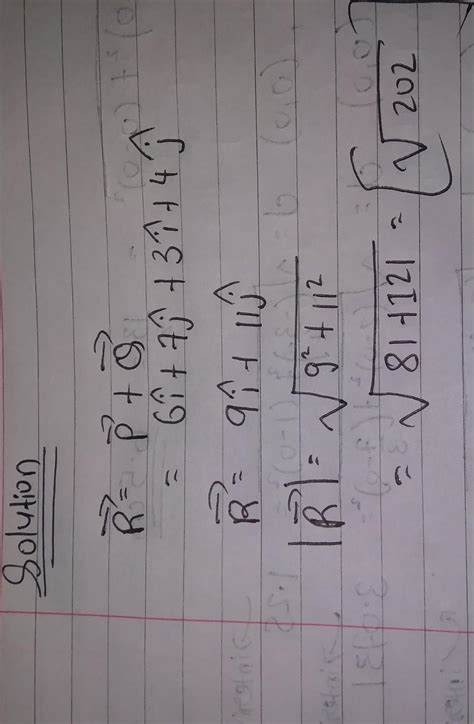 Solution
R⃗ = P⃗ + Q⃗
= 6î + 7ĵ + 3î + 4ĵ
R⃗ = 9î + 11ĵ
|R⃗| = √(9² + 11²)
= √(81 + 121) = √202